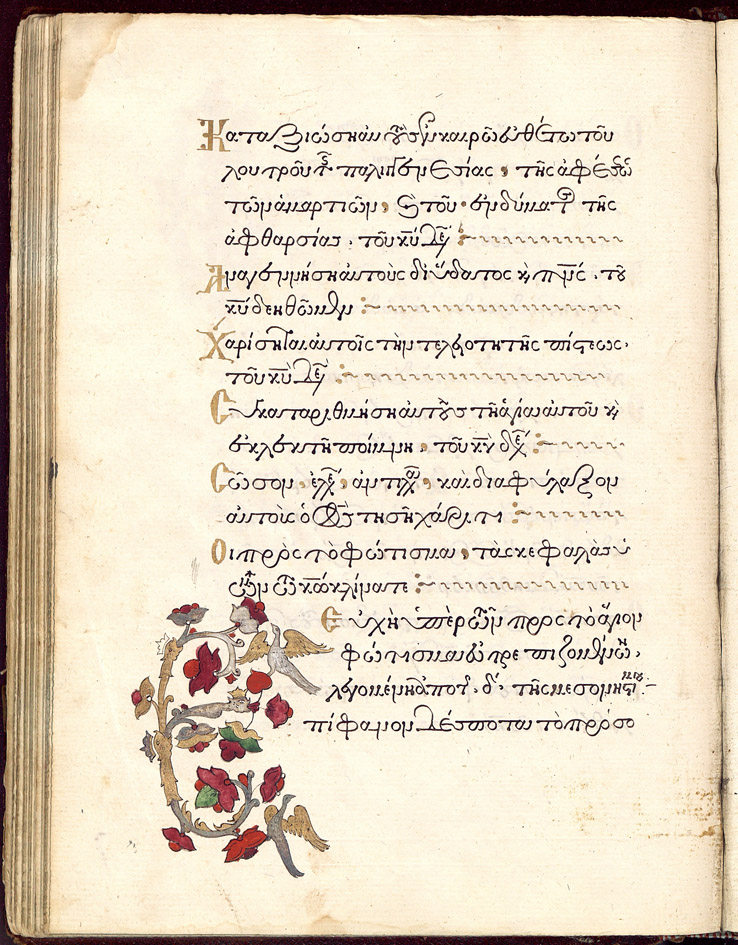 Καταξιώση αυτοὺς ἐν καιρῶ εὐθέτω τοῦ
λουτροῦ τῆς παλιγγενεσίας, τῆς ἀφέσεως
τῶν ἁμαρτιῶν, καὶ τοῦ ἐνδύματος τῆς
ἀφθαρσίας. τοῦ κυ δεη
Αναγεννήση αὐτοὺς δι' ὕδατος καὶ πνς. τοῦ
κυ δεηθῶμεν
Χαρίσηται αὐτοῖς τὴν τελειότητα τῆς πίστεως.
τοῦ κυ δεη
Συγκαταριθμήση αὐτοὺς τῆ ἁγία αὐτοῦ καὶ
ἐκλεκτῆ ποίμνη, τοῦ κυ δεη
Σῶσον, ἐλέη, ἀντιλαβ, καὶ διαφύλαξον
αὐτοὺς ὁ θς τῆ σῆ χάριτι
Οἱ πρὸς τὸ φώτισμα, τὰς κεφαλὰς ὑ
μῶν τῶ κω κλίνατε
Εὐχὴ ὑπὲρ τῶν πρὸς τὸ ἅγιον
φώτισμα εὐτρεπιζομένων,
λεγομένη ἀπὸ τῆς δ' τῆς μεσονηστί
πίφανον Δέσποτα τὸ πρόσω